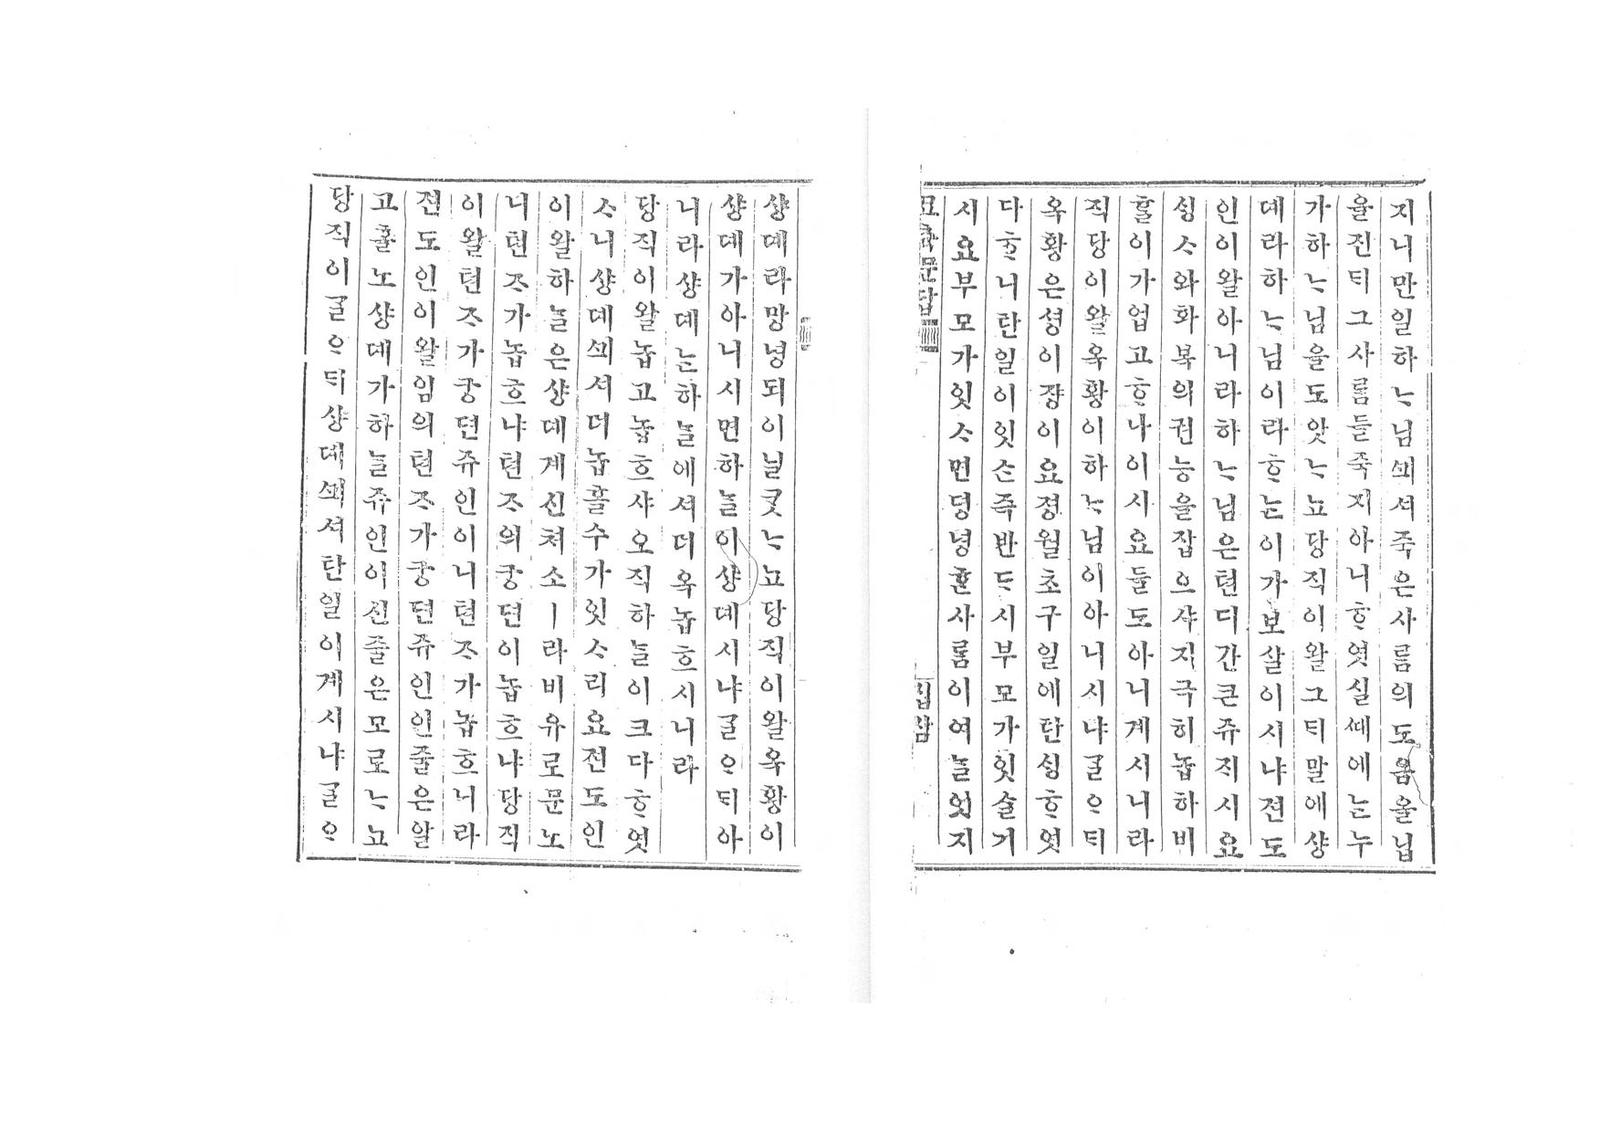 지니만일하ᄂᆞ님ᄭᅴ셔죽은사ᄅᆞᆷ의도옴을닙
을진ᄃᆡ그사ᄅᆞᆷ들죽지아니ᄒᆞ엿실ᄯᅢ에ᄂᆞᆫ누
가하ᄂᆞ님을도앗ᄂᆞ뇨당직이왈그ᄃᆡ말에샹
뎨라하ᄂᆞ님이라ᄒᆞᄂᆞᆫ이가보살이시냐젼도
인이왈아니라하ᄂᆞ님은텬디간큰쥬ᄌᆡ시요
ᄉᆡᆼᄉᆞ와화복의권능을잡으샤지극히놉하비
ᄒᆞᆯ이가업고ᄒᆞ나이시요둘도아니계시니라
직당이왈옥황이하ᄂᆞ님이아니시냐ᄀᆞᆯᄋᆞᄃᆡ
옥황은셩이쟝이요졍월초구일에탄ᄉᆡᆼᄒᆞ엿
다ᄒᆞ니탄일이잇슨즉반ᄃᆞ시부모가잇슬거
시요부모가잇ᄉᆞ면뎡녕ᄒᆞᆫ사ᄅᆞᆷ이여ᄂᆞᆯ엇지
묘츅문답 십삼
샹뎨라망녕되이닐ᄏᆞᆺᄂᆞ뇨당직이왈옥황이
샹뎨가아니시면하ᄂᆞᆯ이샹뎨시냐ᄀᆞᆯᄋᆞᄃᆡ아
니라샹뎨ᄂᆞᆫ하ᄂᆞᆯ에셔더옥놉흐시니라
당직이왈놉고놉흐샤오직하ᄂᆞᆯ이크다ᄒᆞ엿
ᄉᆞ니샹뎨ᄭᅴ셔더놉흘수가잇ᄉᆞ리요젼도인
이왈하ᄂᆞᆯ은샹뎨계신쳐소ㅣ라비유로문노
니텬ᄌᆞ가놉흐냐텬ᄌᆞ의궁뎐이놉흐냐당직
이왈텬ᄌᆞ가궁뎐쥬인이니텬ᄌᆞ가놉흐니라
젼도인이왈임의텬ᄌᆞ가궁뎐쥬인인줄은알
고홀노샹뎨가하ᄂᆞᆯ쥬인이신줄은모로ᄂᆞ뇨
당직이ᄀᆞᆯᄋᆞᄃᆡ샹뎨ᄭᅴ셔탄일이계시냐ᄀᆞᆯᄋᆞ